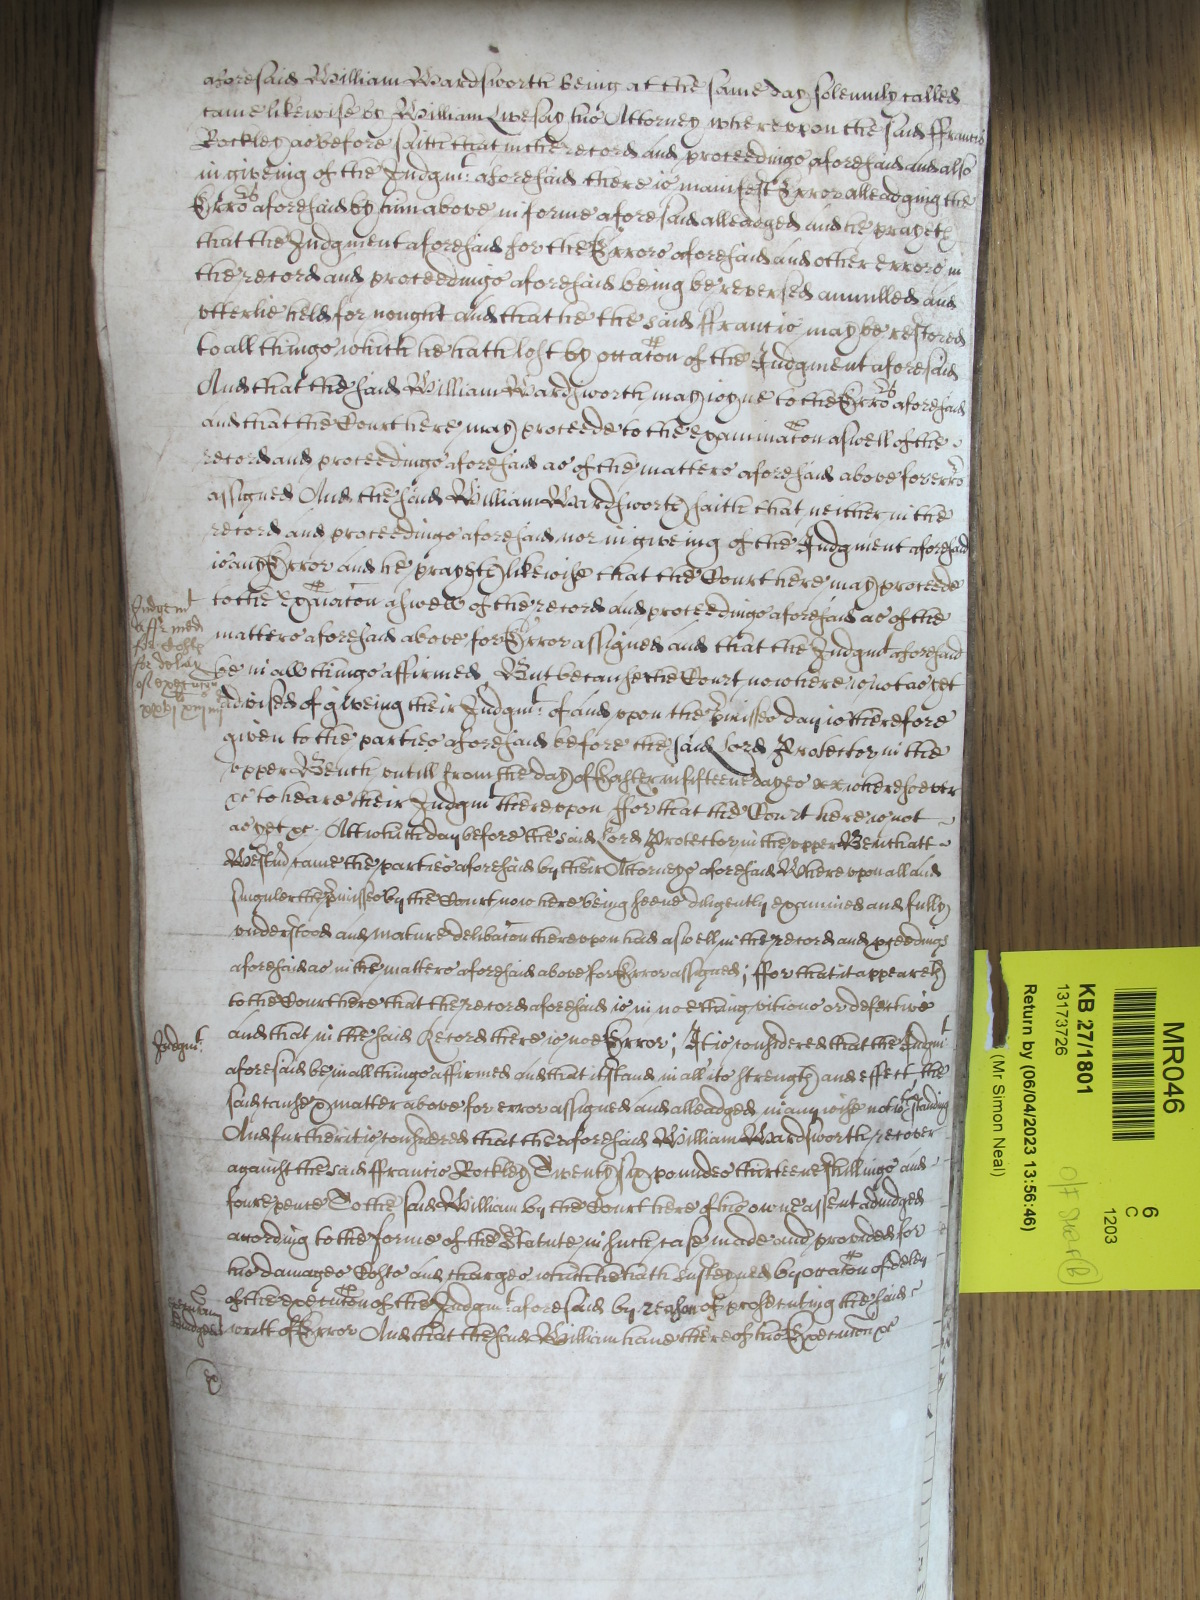 aforesaid William Wardsworth being at the same day solemnly called
came likewise by William Livesay his Attorney whereupon the said Ffrancis
Rockley as before saith that in the record and proceedings aforesaid and also
in giveing of the Judgmt. aforesaid there is manifest Error alleadging the
Erro rs aforesaid by him above in forme aforesaid alleadged and he prayeth
that the Judgment aforesaid for the Errors aforesaid and other errors in
the record and proceedings aforesaid being be reversed annulled and
vtterlie held for nought and that he the said Ffrancis may be restored
to all things which he hath lost by occacon of the Judgment aforesaid
And that the said William Wardsworth may ioyne to the Errors aforesaid
and that the Court here may proceede to the examinacon aswell of the
record and proceedings aforesaid as of the matters aforesaid above for erro rs
assigned And the said William Wardsworth saith that neither in the
record and proceedings aforesaid nor in giveing of the Judgment aforesaid
is any Error and he prayeth likewise that the Court here may proceede
to the Exaiacon aswell of the record and proceedings aforesaid as of the
matters aforesaid above for Error assigned and that the Judgmt aforesaid
be in all things affirmed, But because the Court now here is not as yet
advised of giveing their Judgmt. of and vpon the pmisses day is therefore
given to the parties aforesaid before the said Lord Protector in the
vpper Bench vntill from the day of Easter in fifteene dayes &c wheresoever
&c to heare their Judgmt thereupon Ffor that the Court here is not
as yet &c. Att which day before the said Lord Protector in the vpper Bench att
Westmr came the parties aforesaid by their Attorneys aforesaid Whereupon all and
singuler the pmisses by the Court now here being seene diligently examined and fully
vnderstood and mature delibacon thereupon had aswell in the record and pceedings
aforesaid as in the matters aforesaid above for Error assigned; Ffor that it appeareth
to the Court here that the record aforesaid is in noething vitious or defective
and that in the said Record there is noe Error; It is considered that the Judgmt
aforesaid be in all things affirmed and that it stand in all its strength and effect the
said cause & matter above for error assigned and alleadged in any wise notwthstanding
And further it is considered that the aforesaid William Wardsworth recover
against the said Ffrancis Rockley Twenty six poundes thirteene shillings and
foure pence To the said William by the Court here of his owne assent adiudged
according to the forme of the Statute in such case made and provided for
his damages Costs and charges which he hath susteyned by occacon of delay
of the execucon of the Judgmt. aforesaid by reason of prosecuting the said
writt of Error And that the said William have thereof his Execucon &c
Judgemt
affirmed
for Costs
for delay
of execucon
xxvjli xiijs iiijd
Judgmt.
MR046
6
C
1203
KB 27/1801
13173726
Return by (06/04/2023 13:56:46)
(Mr Simon Neal)